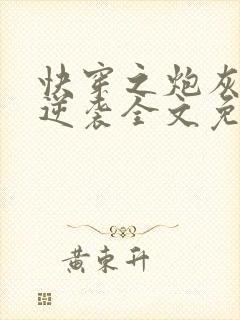 快穿之炮灰
逆袭全文免
黄东升